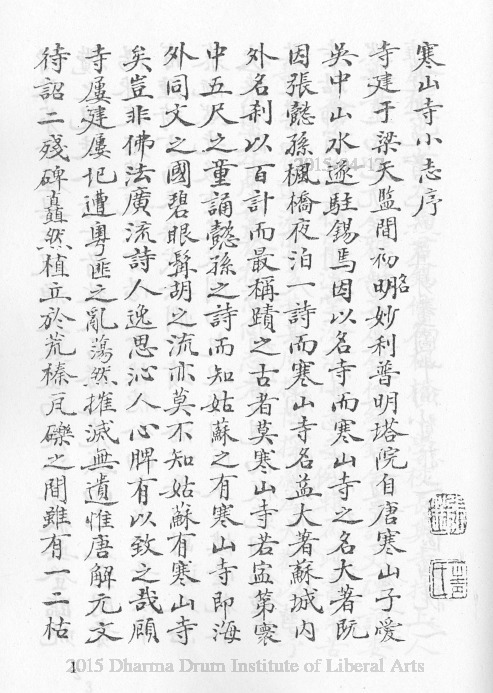 寒山寺小志序
寺建于梁天監間初名明妙利普明塔院自唐寒山子愛
吳中山水遂駐錫焉因以名寺而寒山寺之名大著既
因張懿孫楓橋夜泊一詩而寒山寺名益大著蘇城內
外名剎以百計而最稱蹟之古者莫寒山寺若寰
中五尺之童誦懿孫之詩而知姑蘇之有寒山寺即海
外同文之國碧眼髯胡之流亦莫不知姑蘇有寒山寺
矣豈非佛法廣流詩人逸思沁人心脾有以致之哉顧
寺屢建屢圯遭粵匪之亂蕩然摧滅無遺惟唐解元文
待詔二殘碑矗然植立於荒榛瓦礫之間雖有一二枯
2015-04-13
1
2015 Dharma Drum Institute of Liberal Arts